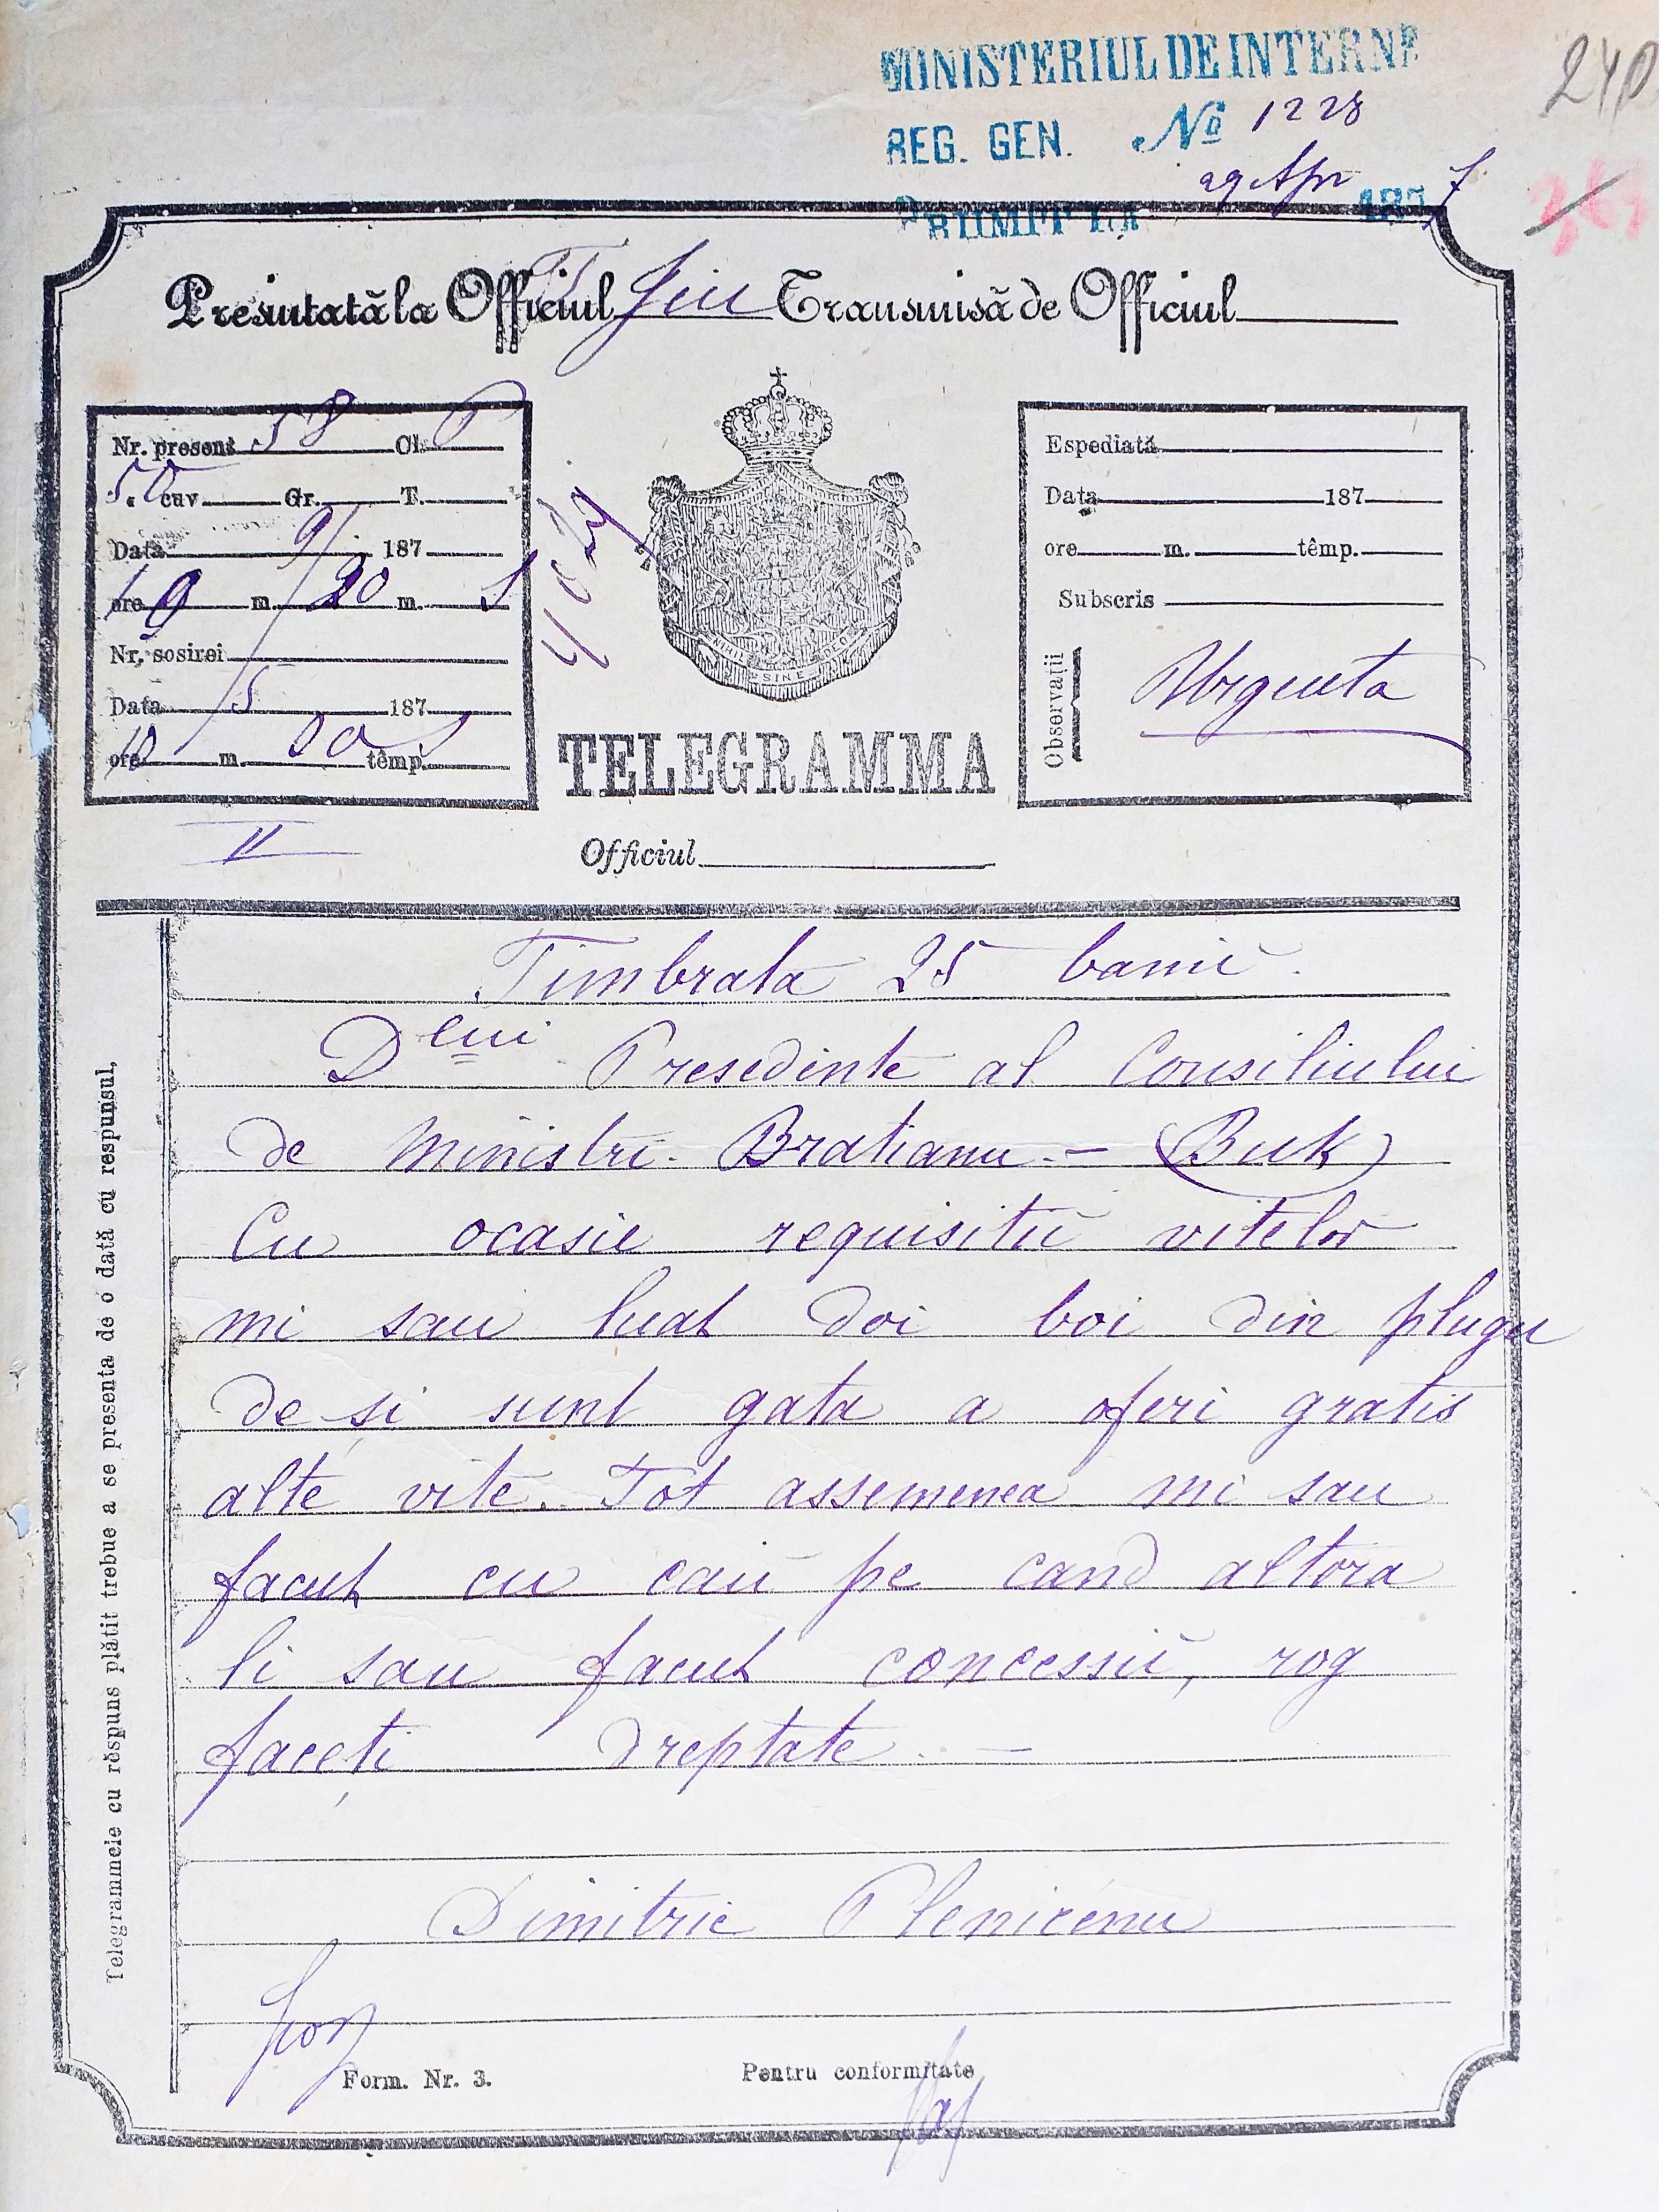 MINISTERIUL DE INTERNE
240
REG. GEN. No 1228
29 Apr 1877
PRIIMIT LA
Presintată la Officiul T Jiu Transmisă de Officiul
Nr. present 58 Cl. P
50 cuv. Gr. T.
Data 9/ 187
ore 10 m. 20 m. S
Nr. sosirei
Data /5 187
ore 10 m. 50 têmp. S
4029
NIHIL SINE DEO
Espediată
Data 187
ore m. têmp.
Subscris
Observații
Urgenta
TELEGRAMMA
II
Officiul
Timbrata 25 banĭ.
Dlui Presedinte al Consiliului
de Ministri. Bratianu. - (Buk)
Cu ocasie requisitiĭ vitelor
mi sau luat doi boi din plugu
de și sunt gata a oferi gratis
alte vite. Tot assemenea mi sau
facut cu caiĭ pe cand altora
li sau facut concessiĭ, rog
faceți dreptate. -
Dimitrie Plenicénu
Telegrammele cu rěspuns plătit trebue a se presenta de o dată cu respunsul,
Form. Nr. 3.
Pentru conformitate